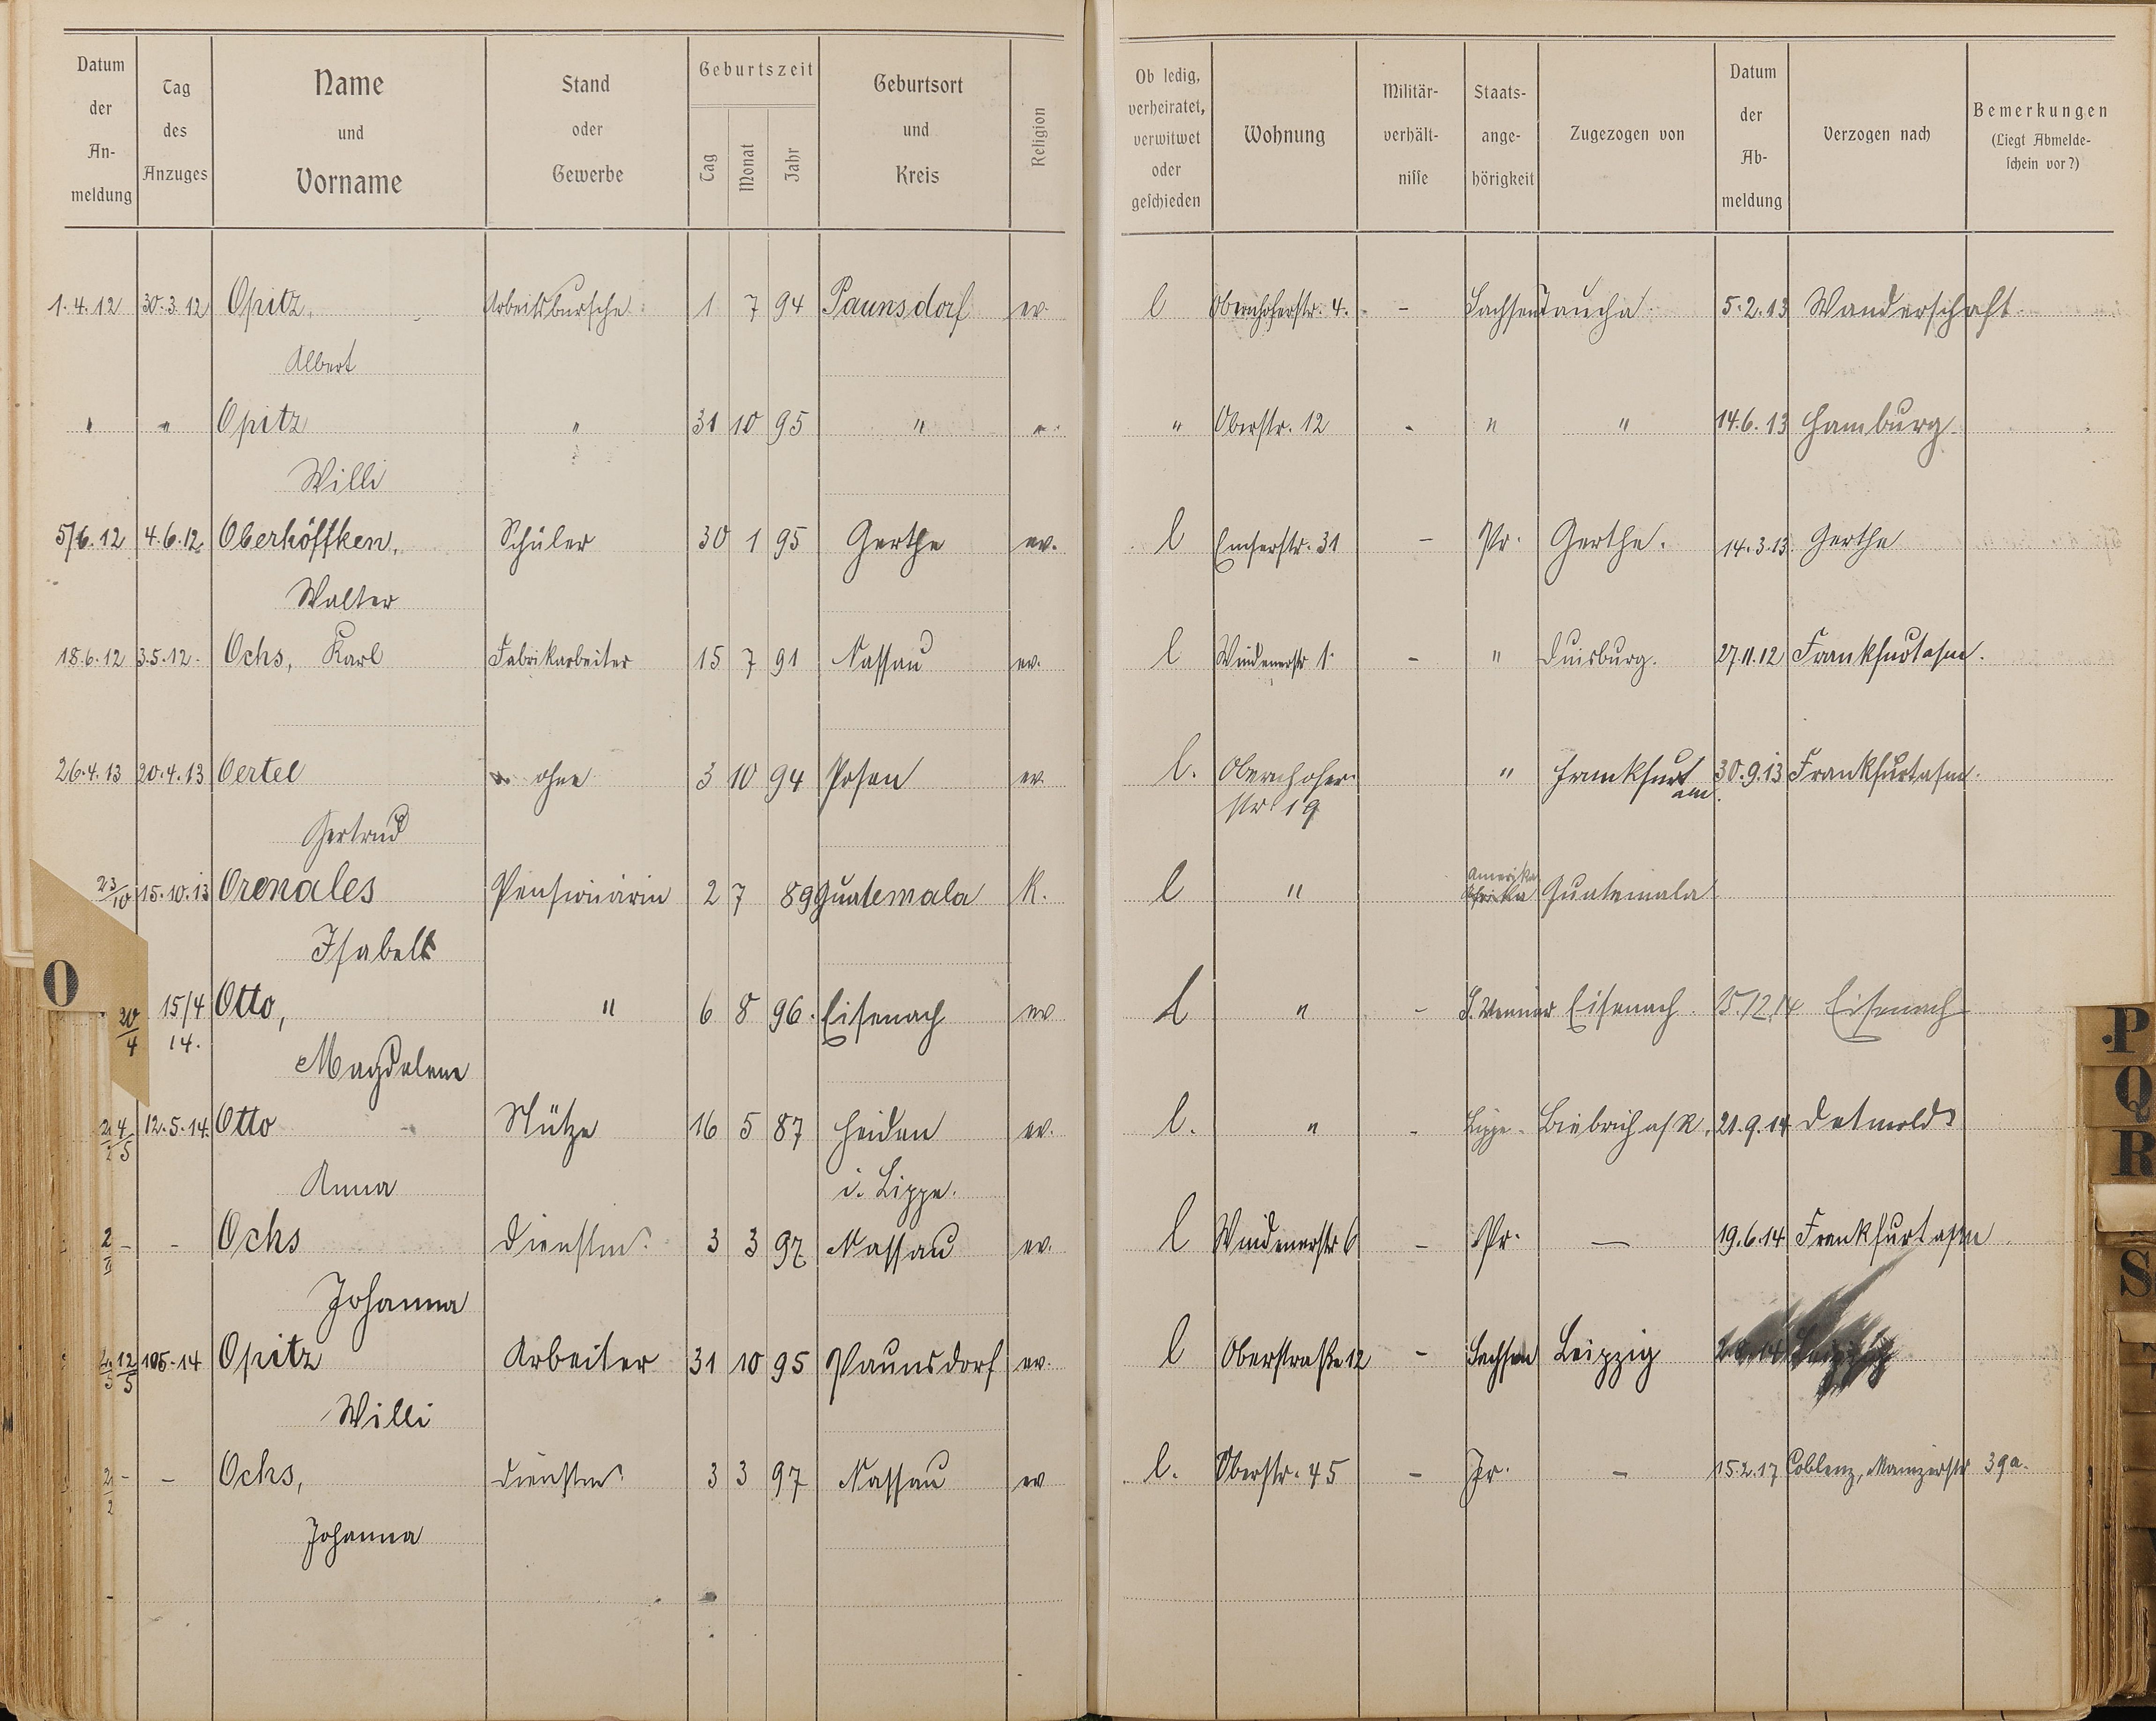 Datum der Anmeldung | Tag des Anzuges | Name und Vorname | Stand oder Gewerbe | Geburtszeit Tag Monat Jahr | Geburtsort und Kreis | Religion | Ob ledig, verheiratet, verwitwet oder geschieden | Wohnung | Militär-verhält-nisse | Staats-ange-hörigkeit | Zugezogen von | Datum der Ab-meldung | Verzogen nach | Bemerkungen (Liegt Abmelde-schein vor?)
1.4.12 30.3.12 Opitz, Arbeitsbursche 1 7 94 Paunsdorf ev. l Obernhoferstr. 4. - Sachsen Taucha. 5.2.13 Wanderschaft.
Albert
" " Opitz " 31 10 95 " " " Oberstr. 12 - " " 14.6.13 Hamburg.
Willi
5/6.12 4.6.12 Oberhöffken, Schüler 30 1 95 Gerthe ev. l Emserstr. 31 - Pr. Gerthe. 14.3.13. Gerthe
Walter
18.6.12 3.5.12. Ochs, Karl Fabrikarbeiter 15 7 91 Nassau ev. l Windenerstr 1. - " Duisburg. 27.11.12 Frankfurt a/m.
26.4.13 20.4.13 Oertel ohne 3 10 94 Posen ev. l. Obernhofer " Frankfurt 30.9.13 Frankfurt a/m.
Gertrud str. 19 a/m.
23/10 15.10.13 Orenales Pensionärin 2 7 89 Guatemala K. l " Amerika Guatemala
Isabell
20/4 15/4 14. Otto, " 6 8 96. Eisenach ev l " - S. Weimar Eisenach. 15/12.14 Eisenach
Magdalene
12.5.14. Otto Stütze 16 5 87 Heiden ev. l. " - Lippe. Biebrich a/R. 21.9.14 Detmold
Anna i. Lippe.
- Ochs Dienstm. 3 3 97 Nassau ev. l Windenerstr 6 - Pr. - 19.6.14 Frankfurt a/m
Johanna
12/5 10.5-14 Opitz Arbeiter 31 10 95 Paunsdorf ev. l Oberstraße 12 - Sachsen Leipzig 2.8.14 Leipzig
Willi
- Ochs, Dienstm. 3 3 97 Nassau ev l. Oberstr. 45 - Pr. - 15.2.17 Coblenz, Mainzerstr 39a.
Johanna
O
P
Q
R
S